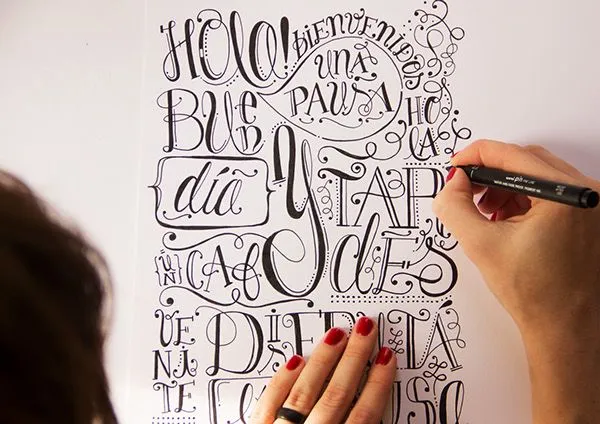 HOLA!
BIENVENIDOS
UNA
PAUSA
HO
LA
BUEN
día
y
TAR
dES
UN
CAFÉ
VE
NA
TE
DISFRUTÁ
uni pin